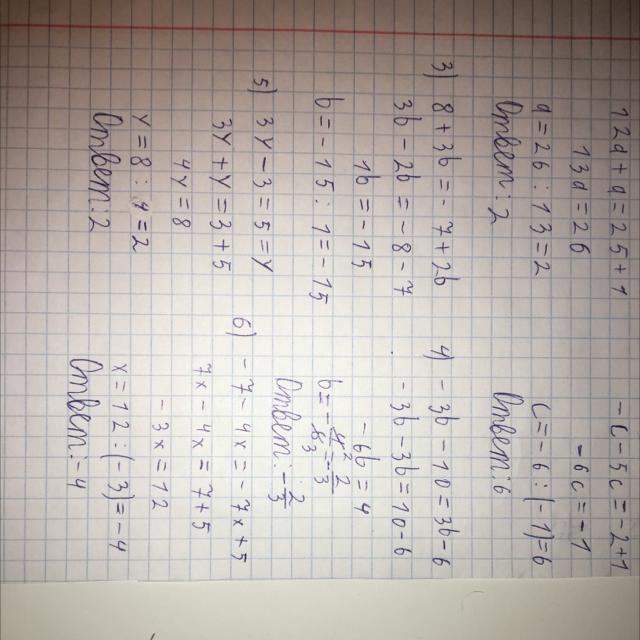 12a + a = 25 + 1
13a = 26
a = 26 : 13 = 2
Ответ: 2
- c - 5c = - 2 + 1
- 6c = - 1
c = - 6 : (- 1) = 6
Ответ: 6
3) 8 + 3b = - 7 + 2b
3b - 2b = - 8 - 7
1b = - 15
b = - 15 : 1 = - 15
4) - 3b - 10 = 3b - 6
- 3b - 3b = 10 - 6
- 6b = 4
b = - 4/6 = - 2/3
Ответ: - 2/3
5) 3y - 3 = 5 = y
3y + y = 3 + 5
4y = 8
y = 8 : 4 = 2
Ответ: 2
6) - 7 - 4x = - 7x + 5
7x - 4x = 7 + 5
- 3x = 12
x = 12 : (- 3) = - 4
Ответ: - 4